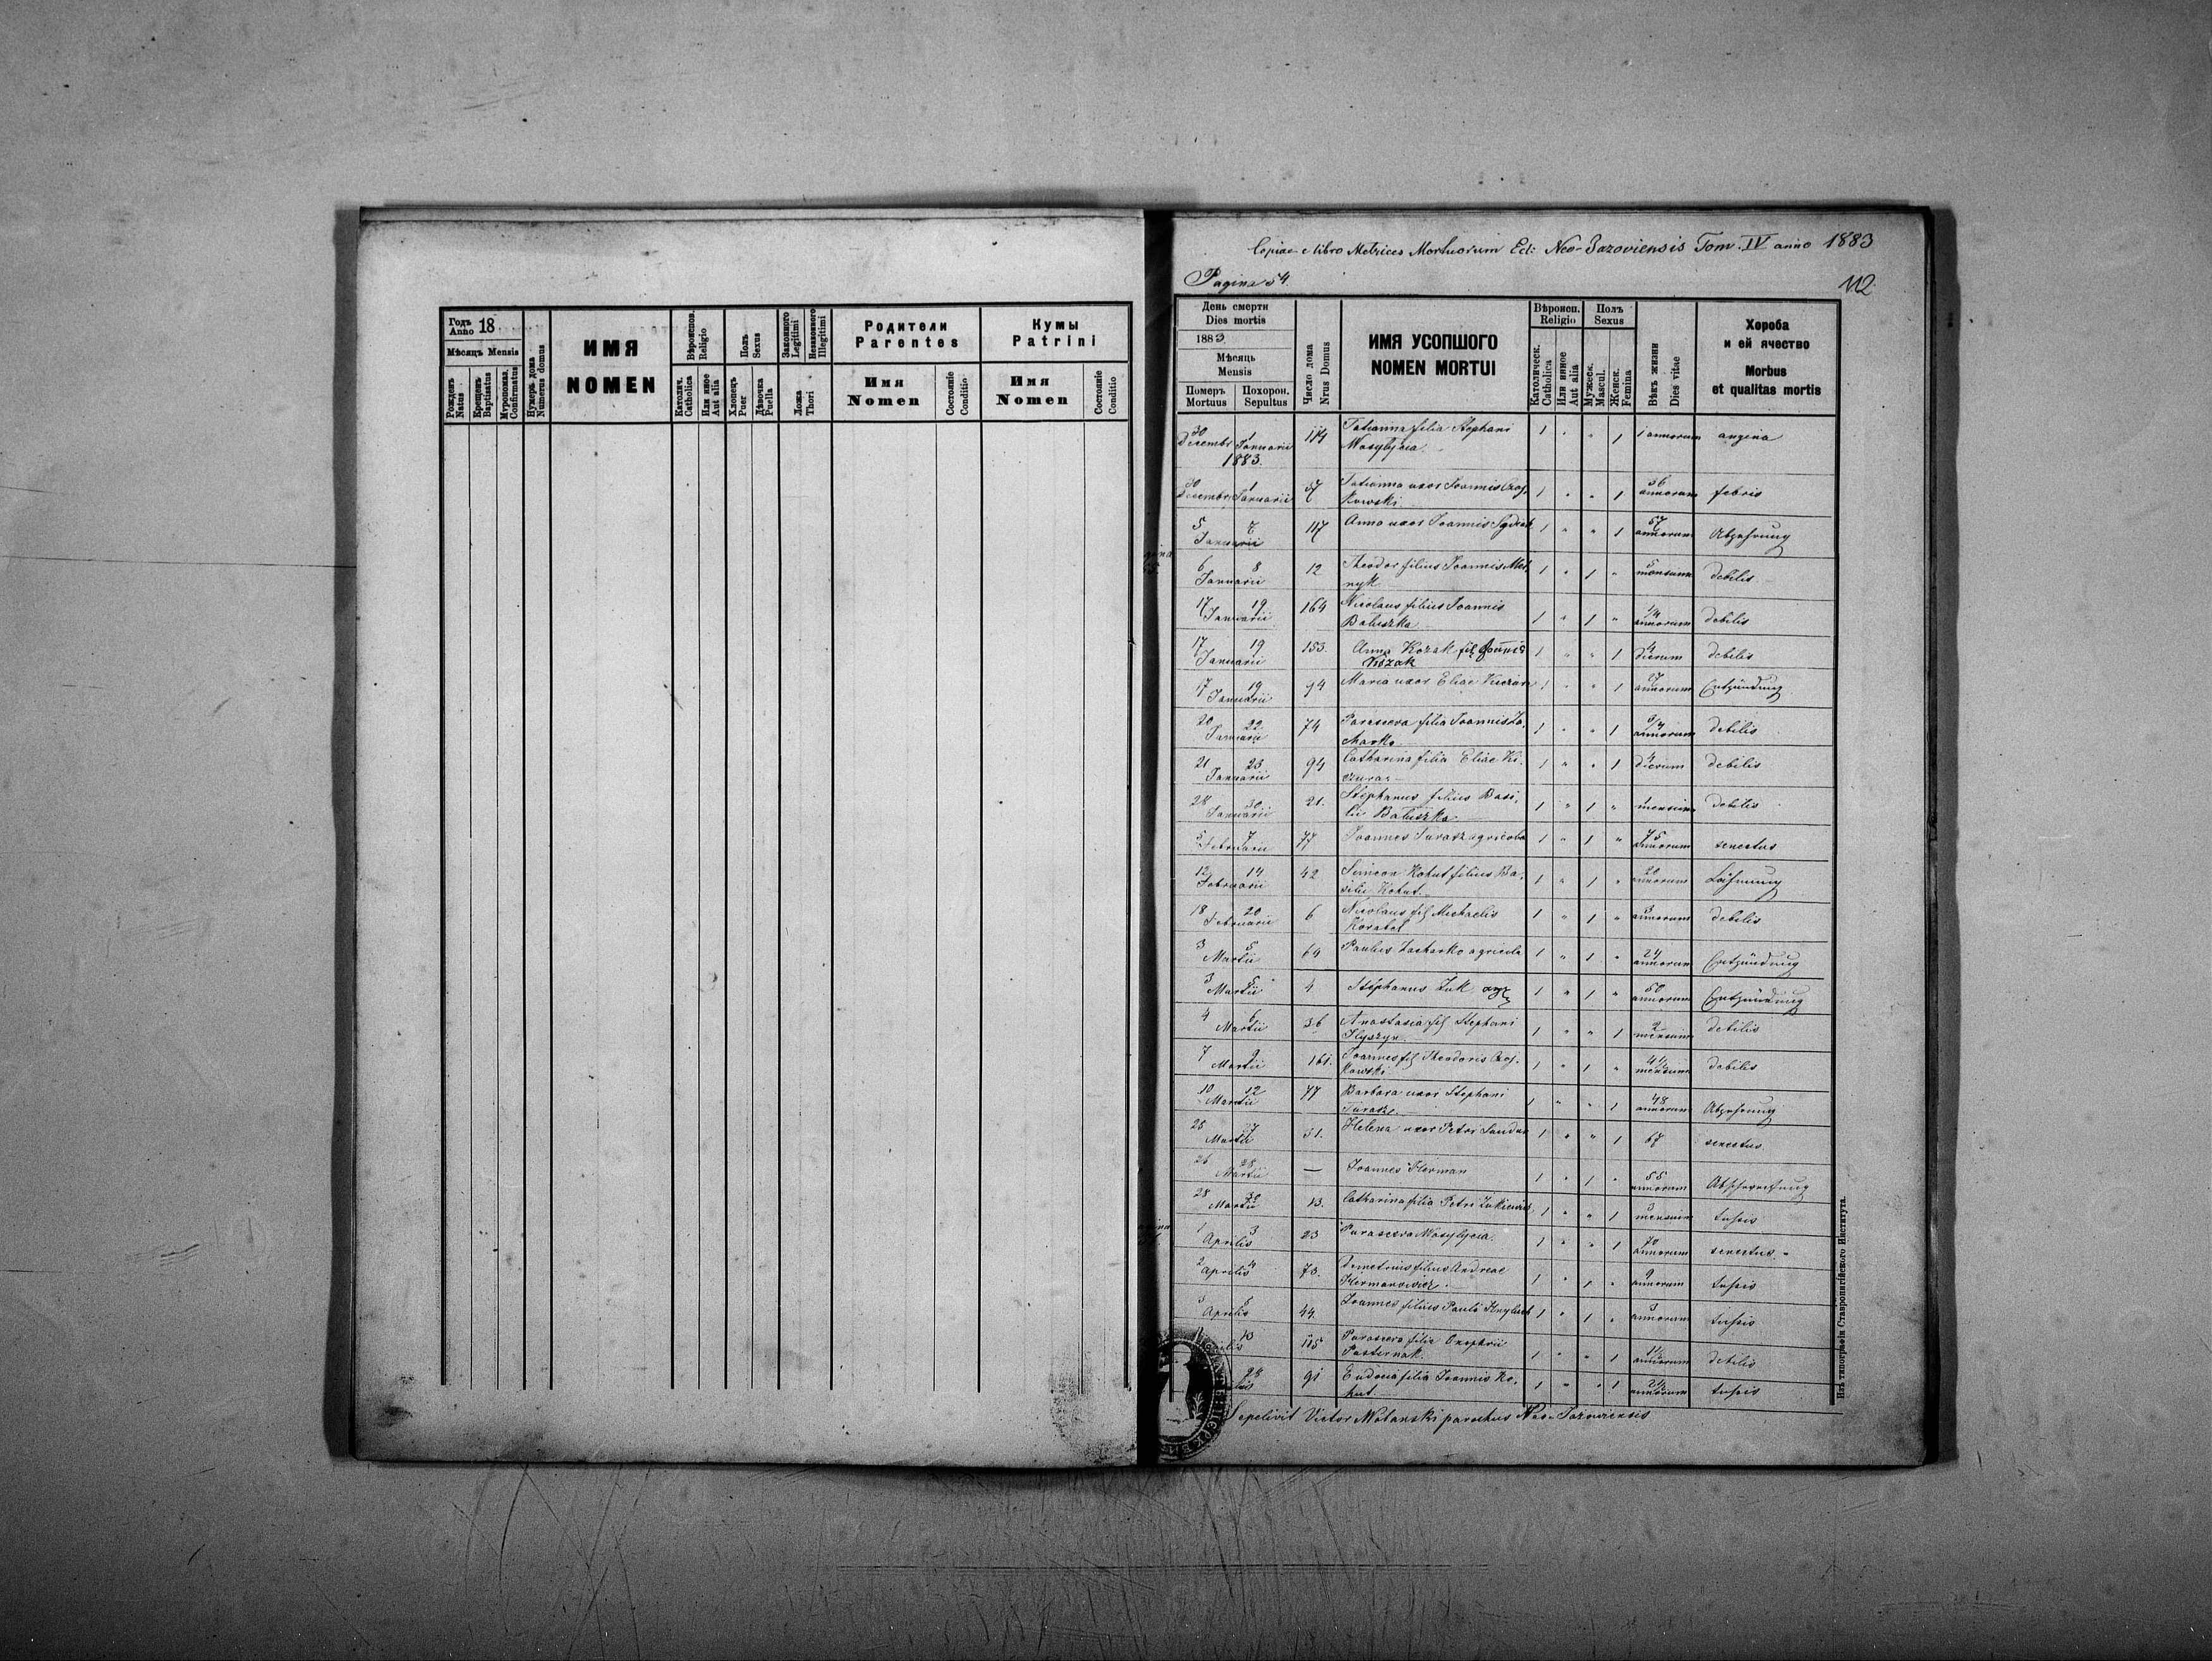 Годъ
Anno 18
Мѣсяцъ Mensis
Рожденъ
Natus
Крещенъ
Baptisatus
Мѵропомаз.
Confirmatus
Нумеръ дома
Numerus domus
ИМЯ
NOMEN
Вѣроиспов.
Religio
Католич.
Catholica
Или иное
Aut alia
Полъ
Sexus
Хлопецъ
Puer
Дѣвочка
Puella
Законного
Legitimi
Незаконного
Illegitimi
Ложа
Thori
Родители
Parentes
Имя
Nomen
Состояніе
Conditio
Кумы
Patrini
Имя
Nomen
Состояніе
Conditio
Copia e libro Metrices Mortuorum Ecl: Neo-Jazoviensis Tom. IV anno 1883
Pagina 54.
112
День смерти
Dies mortis
1883
Мѣсяць
Mensis
Померъ
Mortuus
Похорон.
Sepultus
Число дома
Nrus Domus
ИМЯ УСОПШОГО
NOMEN MORTUI
Вѣроисп.
Religio
Католическ.
Catholica
Или инное
Aut alia
Полъ
Sexus
Мужеск.
Mascul.
Женск.
Femina
Вѣкъ жизни
Dies vitae
Хороба
и ей ячество
Morbus
et qualitas mortis
30 Decembr 1 Januarii 1883. 174 Tatianna filia Stephani 1 " " 1 1 annorum angina
Mosylycia
30 Decembr 1 Januarii 37 Tatianna uxor Joannis 1 " " 1 56 annorum febris
kowski
5 7 Januarii 117 Anna uxor Joannis 1 " " 1 57 annorum Abzehrung
6 8 Januarii 12 Theodor filius Joannis Mel- 1 " 1 " 5 mensium debilis
nyk
17 19 Januarii 164 Nicolaus filius Joannis 1 " 1 " 1/4 annorum debilis
Baluszka
17 19 Januarii 153. Anna Kozak fil Joannis 1 " " 1 4 dierum debilis
Kozak
17 19 Januarii 94 Maria uxor Eliae 1 " " 1 27 annorum Entzündung
20 22 Januarii 74 Parasceva filia Joannis Za- 1 " " 1 3/4 annorum debilis
charko
21 23 Januarii 94 Catharina filia Eliae Ki- 1 " " 1 4 dierum debilis
czura
28 30 Januarii 21. Stephanus filius Basi- 1 " 1 " mensium debilis
lii Baluszka
5 7 Februarii 77 Joannes Turasz agricola 1 " 1 " 75 annorum senectus
12 14 Februarii 42 Simeon Kohut filius Ba- 1 " 1 " 20 annorum Lähmung
silii Kohut
18 20 Februarii 6 Nicolaus fil Michaelis 1 " 1 " 3 annorum debilis
Korabel
3 5 Martii 69 Paulus Zacharko agricola 1 " 1 " 24 annorum Entzündung
3 5 Martii 4 Stephanus Zuk agr 1 " 1 " 50 annorum Entzündung
4 6 Martii 36 Anastasia fil Stephani 1 " " 1 2 mensium debilis
7 9 Martii 161. Joannes fil Theodoris 1 " 1 " 4 1/2 mensium debilis
kowski
10 12 Martii 77 Barbara uxor Stephani 1 " " 1 48 annorum Abzehrung
Turasz
25 27 Martii 31. Helena uxor Petri 1 " " 1 67 senectus
26 28 Martii — Joannes Herman 1 " 1 " 55 annorum
28 30 Martii 13. Catharina filia Petri Zukiewicz 1 " " 1 3 mensium tussis
1 3 Aprilis 23 Parasceva Mosylycia 1 " " 1 70 annorum senectus
2 4 Aprilis 73. Demetrius filius Andreae 1 " 1 " 9 annorum tussis
Hermanowicz
3 5 Aprilis 44. Joannes filius Pauli 1 " 1 " 3 annorum tussis
10 115 Parasceva filia Onuphrii 1 " " 1 1 1/2 annorum debilis
Pasternak
28 91 Eudocia filia Joannis Ko- 1 " " 1 2 1/2 annorum tussis
hut
Sepelivit Victor parochus Neo-Jazoviensis
Изъ типографіи Ставропигійского Института.